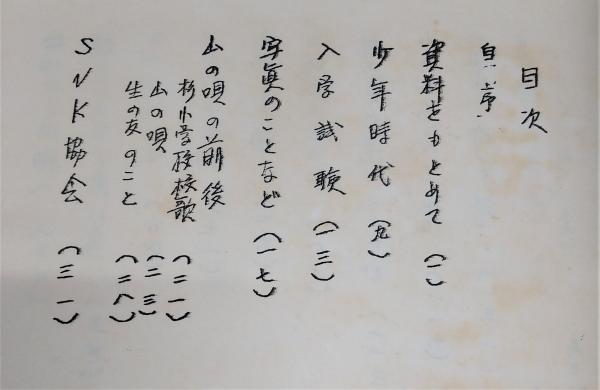 目次
自序
資料をもとめて（一）
少年時代（九）
入学試験（一三）
写真のことなど（一七）
山の唄の前後
杉小学校校歌（二一）
山の唄（二三）
生の友のこと（二八）
SNK協会（三一）